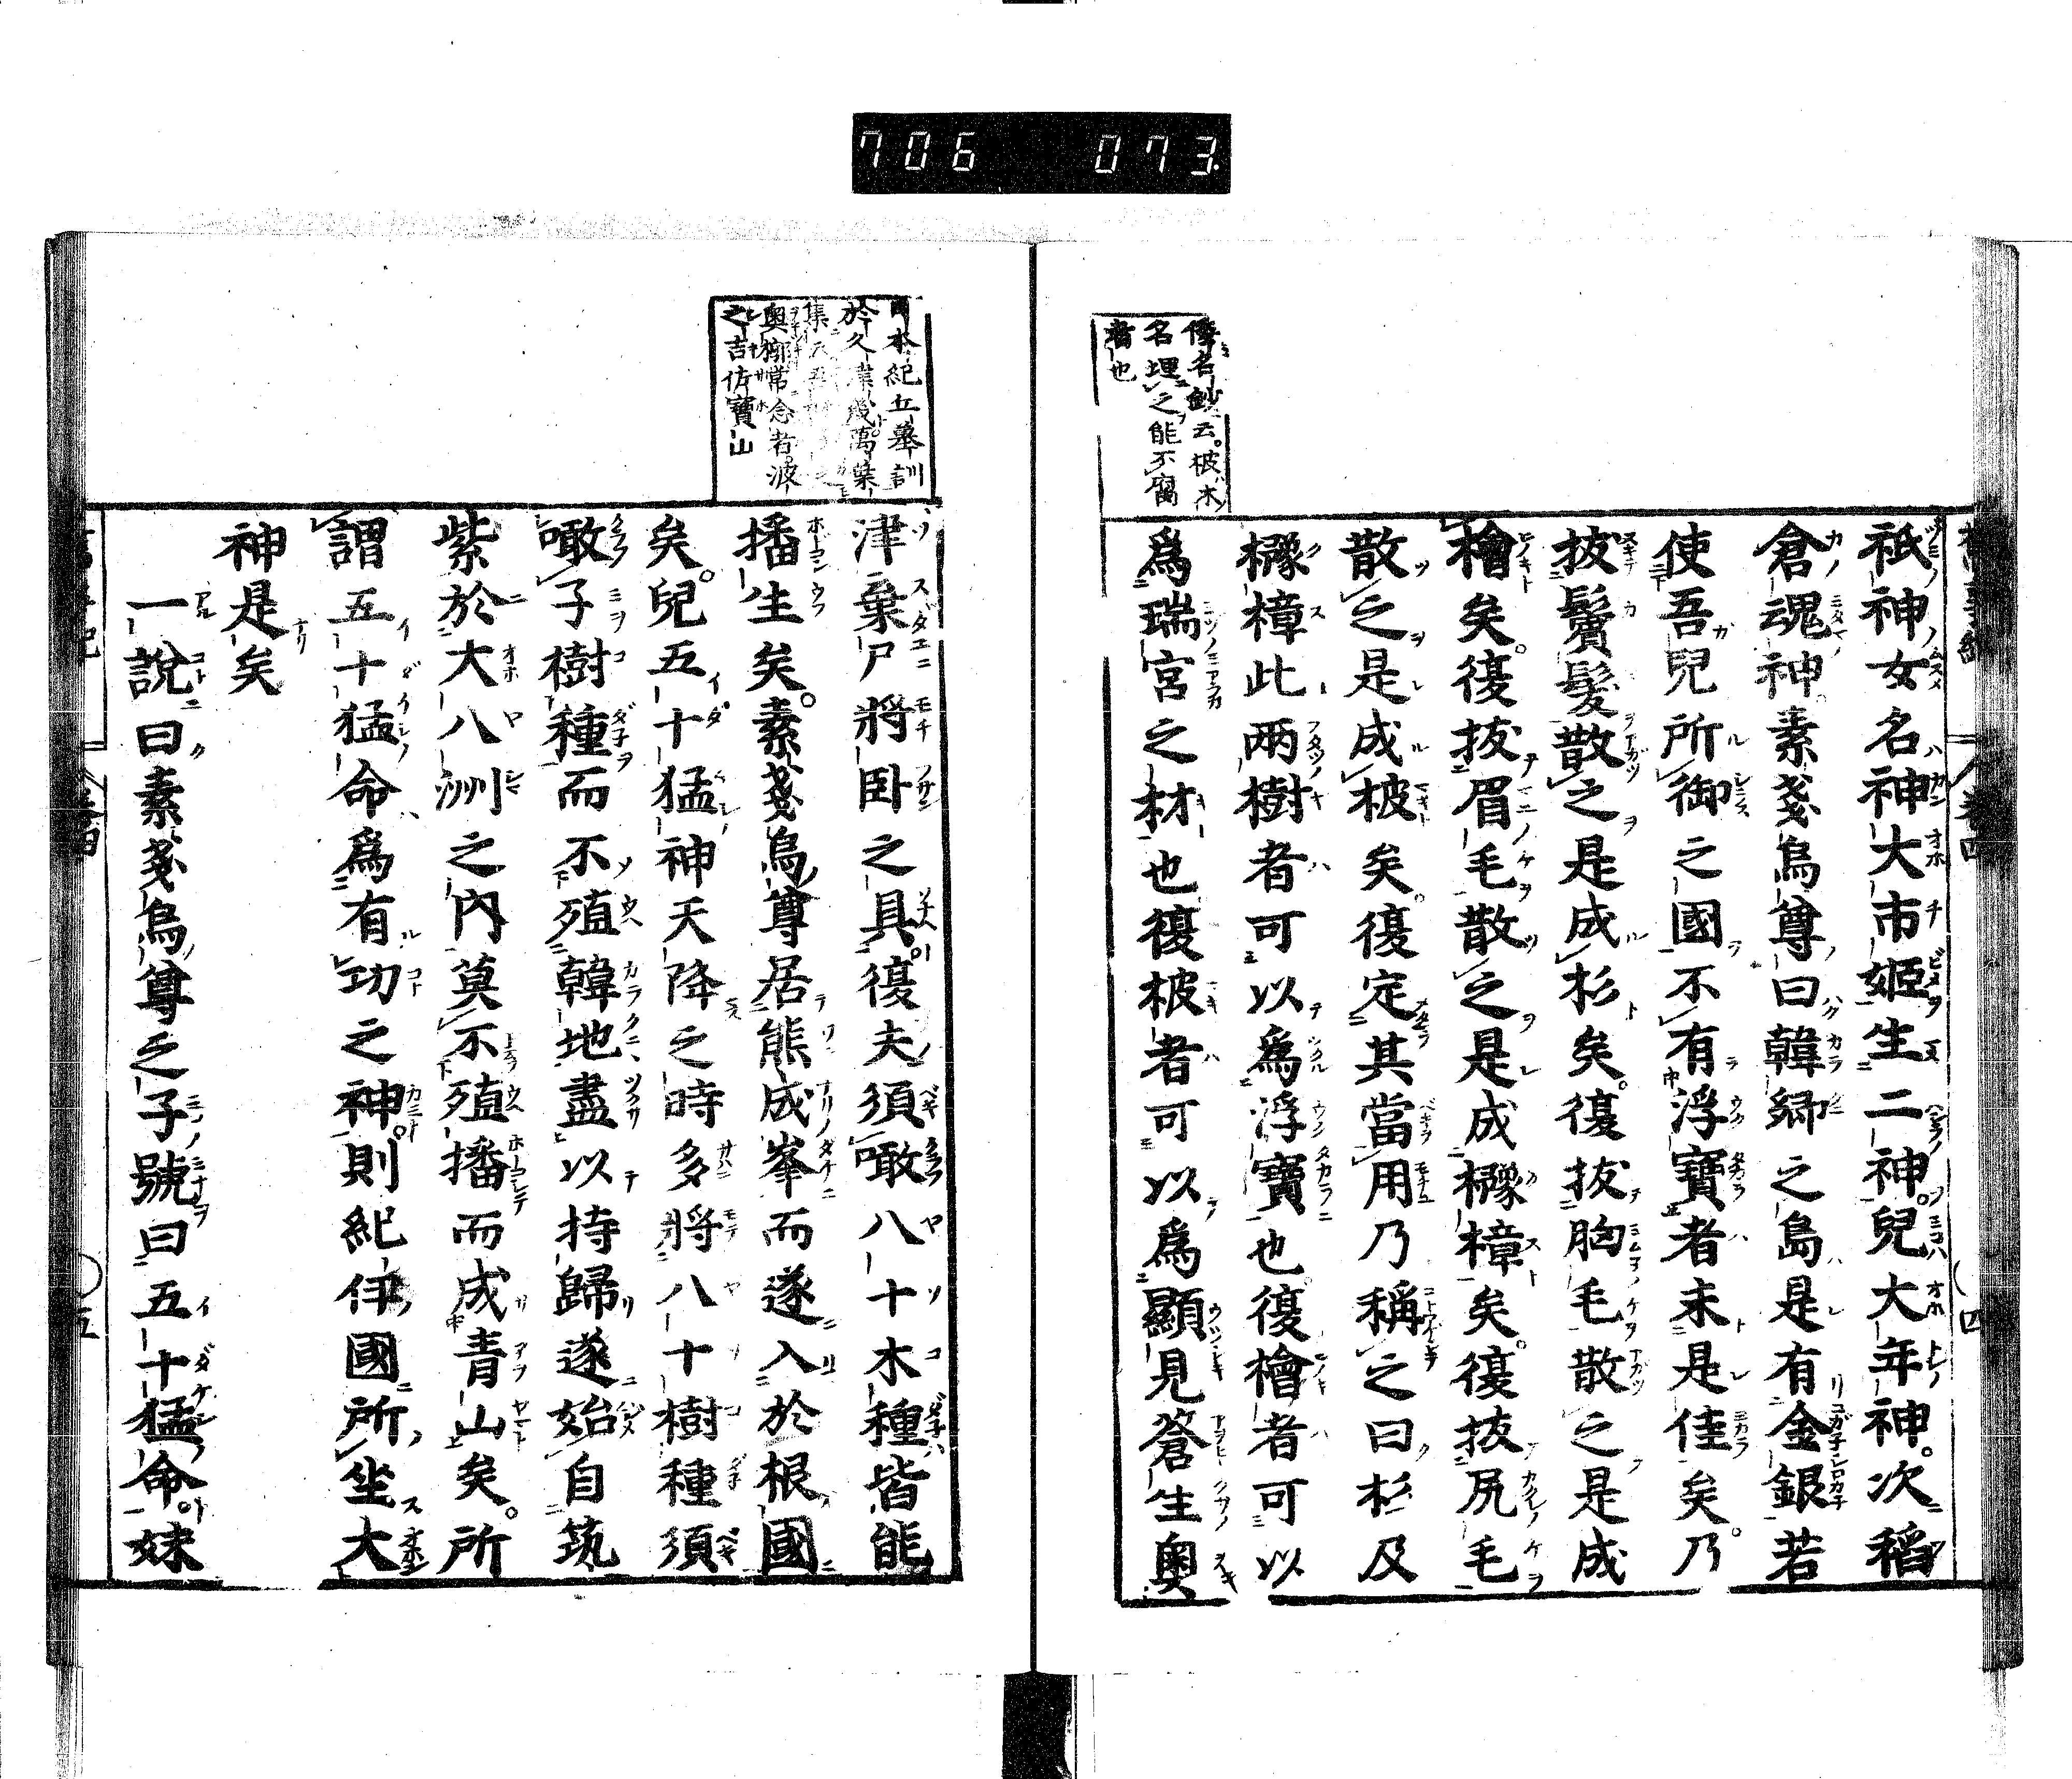 706 073
倭名鈔云。柀木
名埋之能不腐
者也
祇神女名神大市姬生二神。兒大年神。次稻
倉魂神。素戔烏尊曰韓鄉之島是有金銀若
使吾兒所御之國不有浮寶者未是佳矣。乃
拔鬢髮散之是成杉矣。復拔胸毛散之是成
檜矣。復拔眉毛散之是成櫲樟矣。復拔尻毛
散之是成柀矣。復定其當用乃稱之曰杉及
櫲樟此兩樹者可以爲浮寶也。復檜者可以
爲瑞宮之材也復柀者可以爲顯見蒼生奧
日本紀丘墓訓
於久
萬葉
集
奧槨常念者。波
之吉佐寶山
津棄尸將卧之具。復夫須噉八十木種皆能
播生矣。素戔烏尊居熊成峯而遂入於根國
矣。兒五十猛神天降之時多將八十樹種須
噉子樹種而不殖韓地盡以持歸遂始自筑
紫於大八洲之內莫不殖播而成青山矣。所
謂五十猛命爲有功之神。則紀伊國所坐大
神是矣
一說曰素戔烏尊之子號曰五十猛命。妹
卷四
五
四